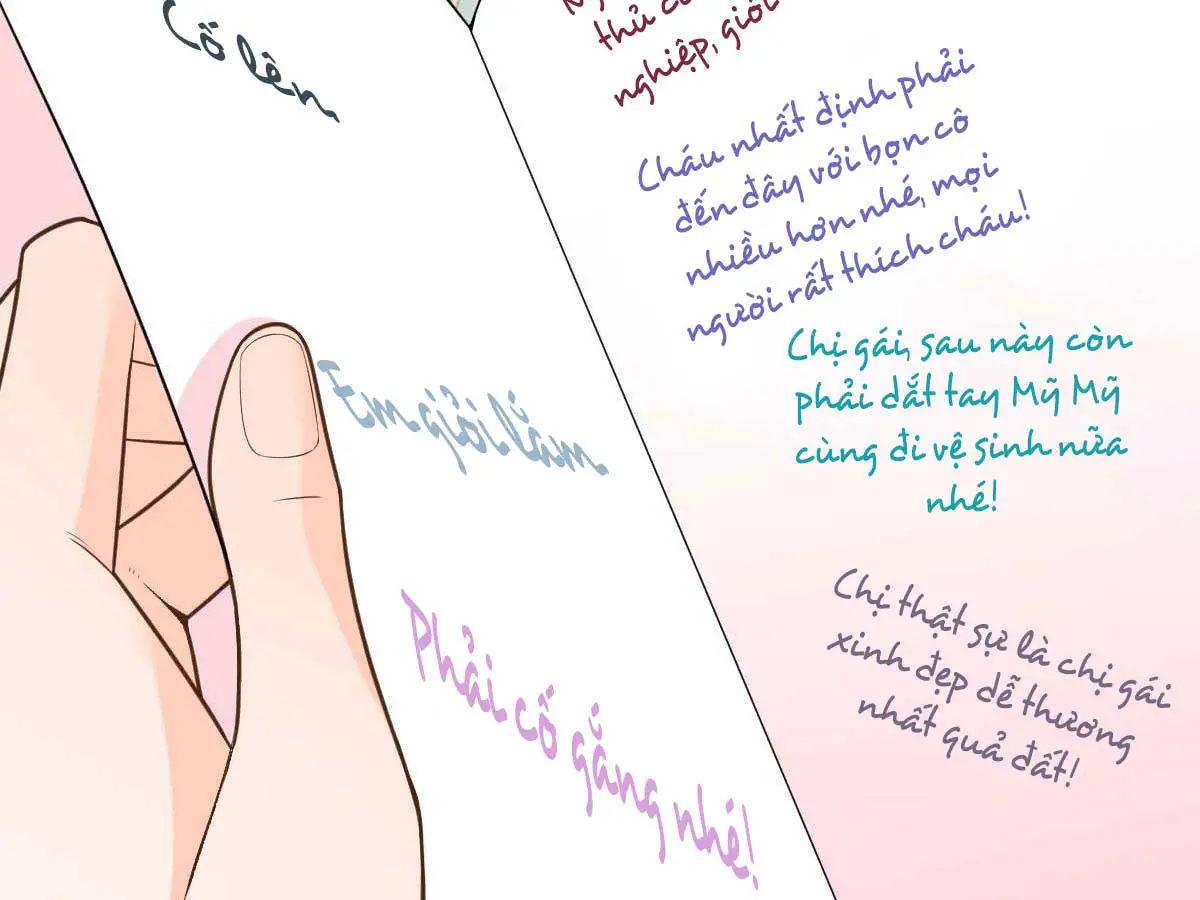 Cố lên
Em giỏi lắm
Phải cố gắng nhé!
thủ
nghiệp, giỏi
Cháu nhất định phải
đến đây với bọn cô
nhiều hơn nhé, mọi
người rất thích cháu!
Chị gái, sau này còn
phải dắt tay Mỹ Mỹ
cùng đi vệ sinh nữa
nhé!
Chị thật sự là chị gái
xinh đẹp dễ thương
nhất quả đất!